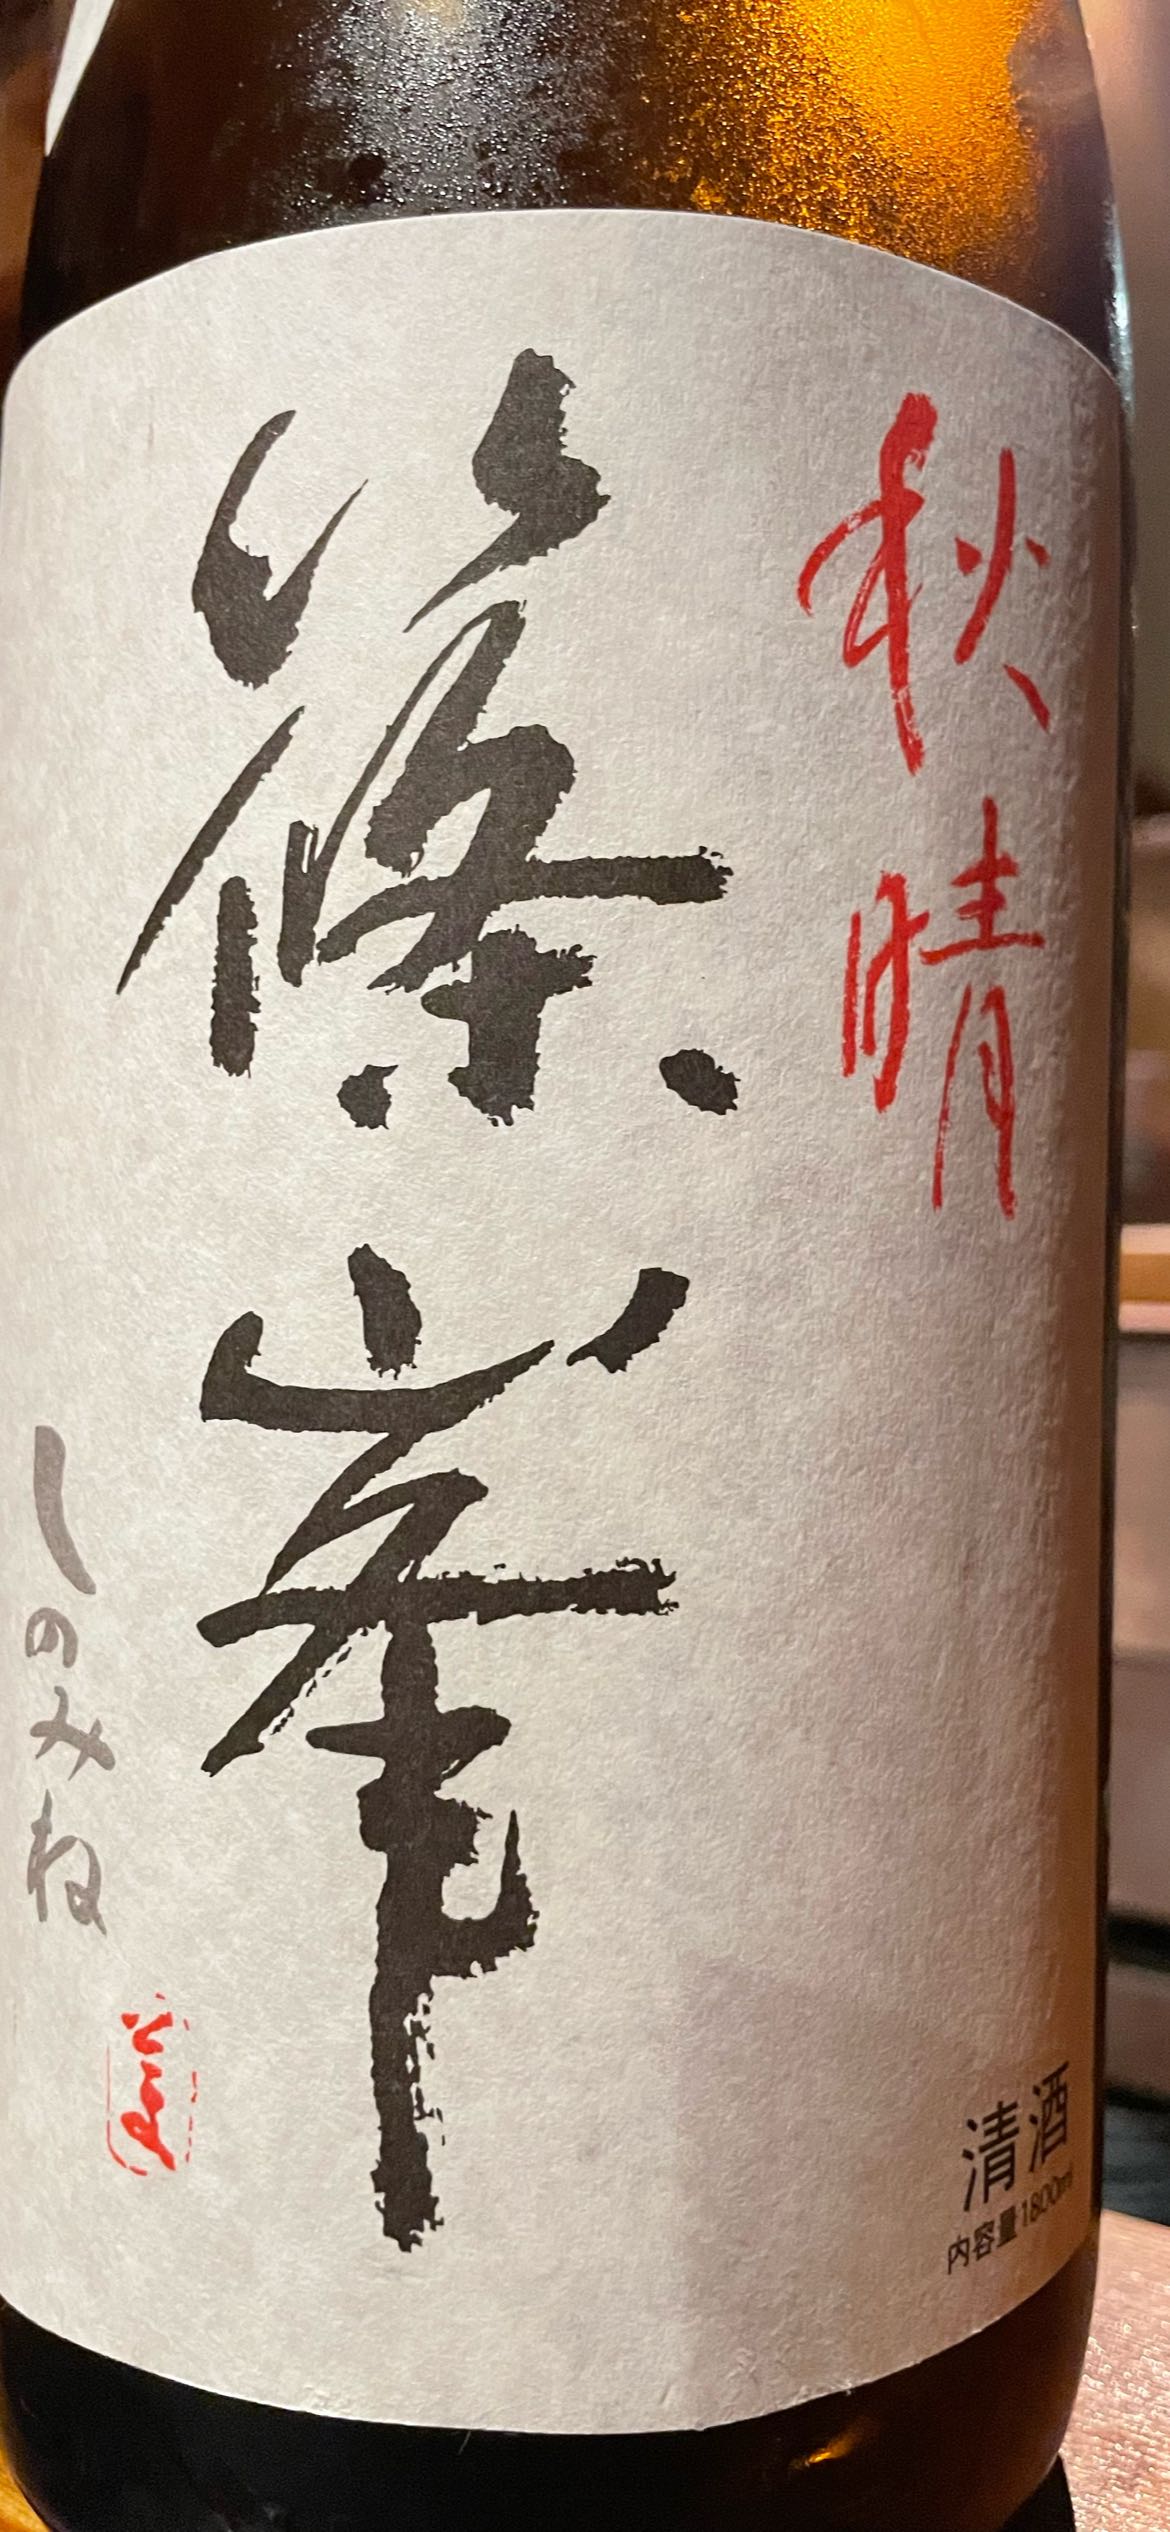 秋晴
篠峯
しのみね
清酒
内容量1800ml